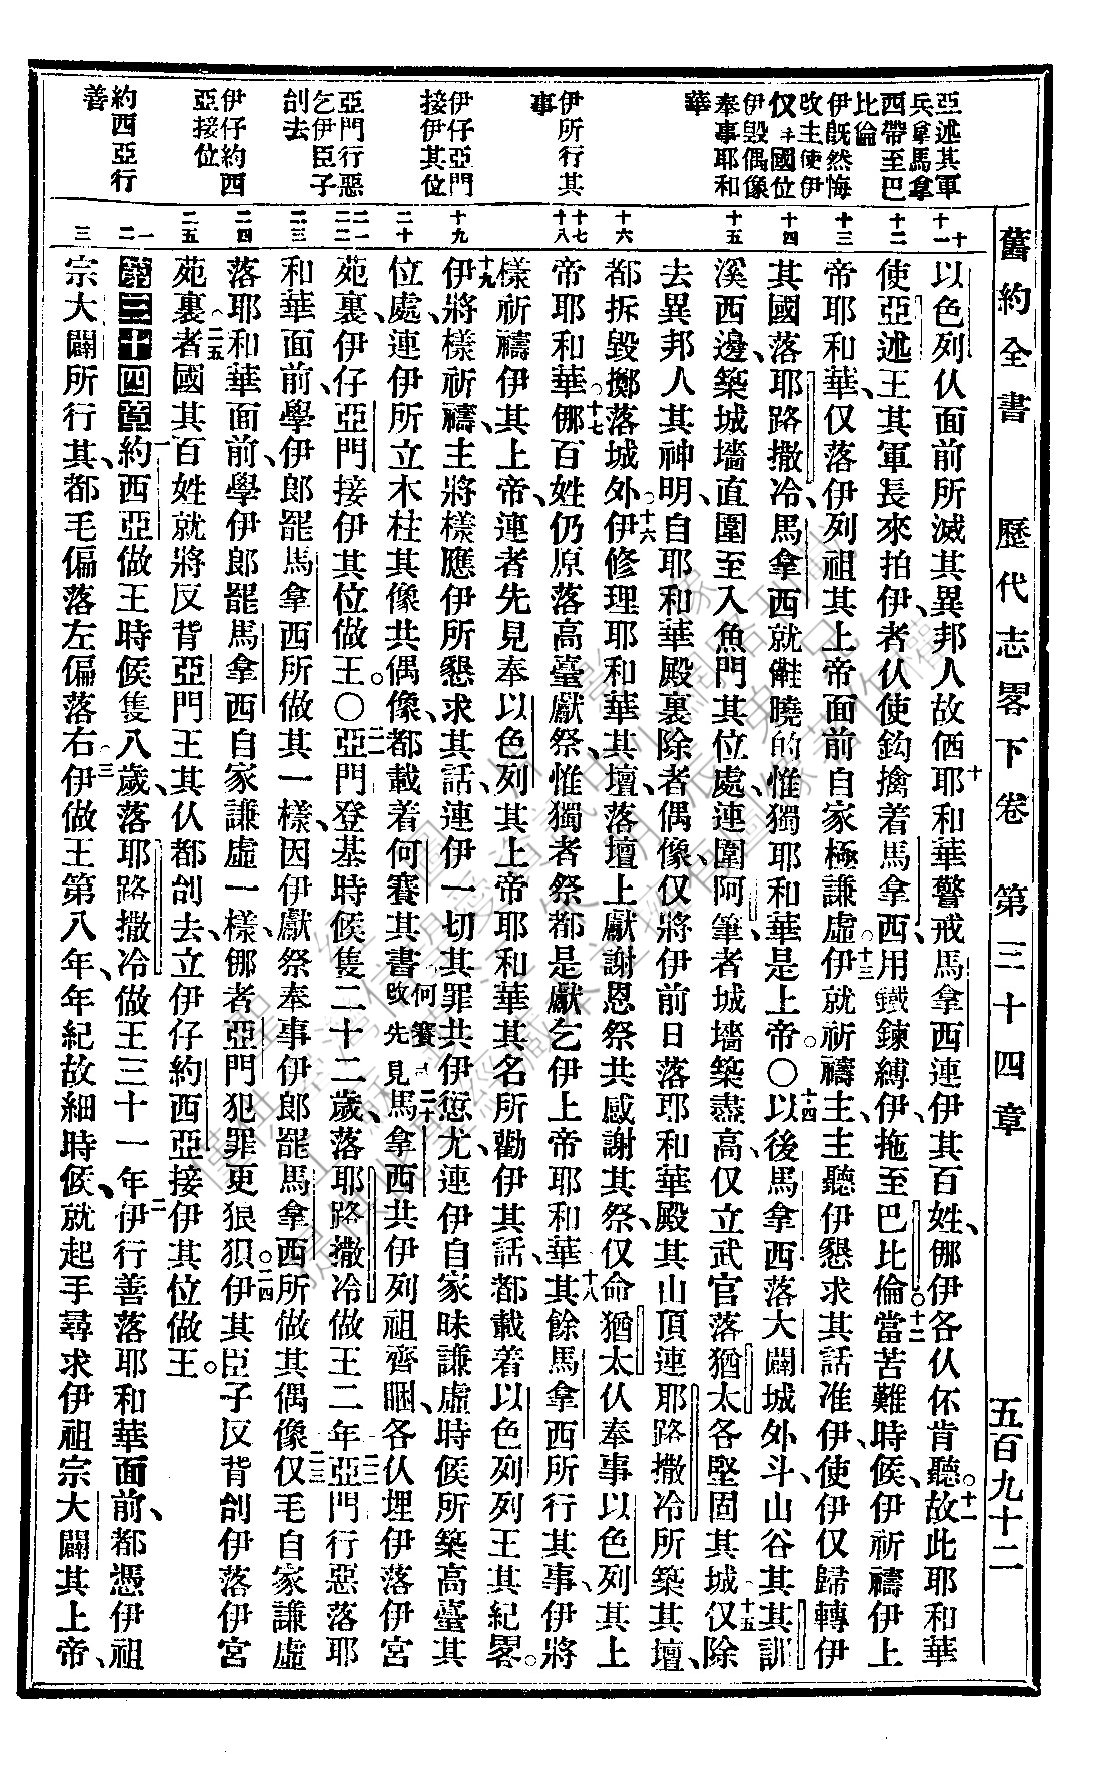 舊約全書　歷代志畧下卷　第三十四章　五百九十二
亞述其軍
兵拿馬拿
西帶至巴
比倫
伊旣然悔
改主使伊
仅國位
伊毁偶像
奉事耶和
華
伊所行其
事
伊仔亞門
接伊其位
亞門行惡
乞伊臣子
刣去
伊仔約西
亞接位
約西亞行
善
十
十一
十二
十三
十四
十五
十六
十七
十八
十九
二十
二一
二二
二三
二四
二五
一
二
三
以色列仈面前所滅其異邦人故偤十耶和華警戒馬拿西連伊其百姓、㑚伊各仈伓肯聽。十一故此耶和華
使亞述王其軍長來拍伊、者仈使鈎擒着馬拿西、用鐵鍊縛伊、拖至巴比倫。十二當苦難時候、伊祈禱伊上
帝耶和華、仅落伊列祖其上帝面前自家極謙虛。十三伊就祈禱主、主聽伊懇求其話准伊、使伊仅歸轉伊
其國落耶路撒冷、馬拿西就曉的惟獨耶和華是上帝。○十四以後馬拿西落大闢城外斗、山谷其其訓
溪西邊、築城墻直圍至入魚門其位處、連圍阿筆、者城墻築盡高、仅立武官落猶太各堅固其城。十五仅除
去異邦人其神明、自耶和華殿裏除者偶像、仅將伊前日落耶和華殿其山頂連耶路撒冷所築其壇、
都拆毁擲落城外。十六伊修理耶和華其壇、落壇上獻謝恩祭共感謝其祭、仅命猶太仈奉事以色列其上
帝耶和華。十七㑚百姓仍原落高臺獻祭、惟獨者祭都是獻乞伊上帝耶和華。十八其餘馬拿西所行其事、伊將
樣祈禱伊其上帝、連者先見奉以色列其上帝耶和華其名所勸伊其話、都載着以色列列王其紀畧。
十九伊將樣祈禱、主將樣應伊所懇求其話、連伊一切其罪共伊愆尤、連伊自家昧謙虛時候所築高臺其
位處、連伊所立木柱其像共偶像、都載着何賽其書。何賽改先見二十馬拿西共伊列祖齊睏、各仈埋伊落伊宮
苑裏、伊仔亞門接伊其位做王。○二一亞門登基時候隻二十二歲、落耶路撒冷做王二年。二二亞門行惡落耶
和華面前、學伊郎罷馬拿西所做其一樣、因伊獻祭奉事伊郎罷馬拿西所做其偶像。二三仅毛自家謙虛
落耶和華面前、學伊郎罷馬拿西自家謙虛一樣、㑚者亞門犯罪更狠狽。二四伊其臣子反背刣伊落伊宮
苑裏。二五者國其百姓就將反背亞門王其仈都刣去、立伊仔約西亞接伊其位做王。
第三十四章一約西亞做王時候隻八歲、落耶路撒冷做王三十一年。二伊行善落耶和華面前、都憑伊祖
宗大闢所行其、都毛偏落左偏落右。三伊做王第八年、年紀故細時候、就起手尋求伊祖宗大闢其上帝、